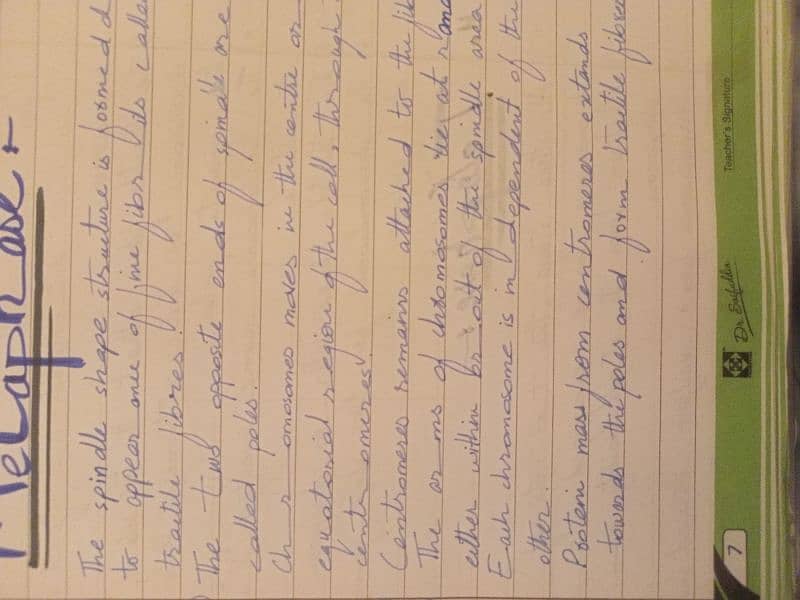 Metaphase :-
The spindle shape structure is formed d
to appear ance of fine fibr its calle
tractile fibres.
The two opposite ends of spindle are
called poles.
Ch r omosomes moves in the centre or
equatorial region of the cell, through
cent omeres.
Centromeres remains attached to the fib
The ar ms of chromosomes lie at rand
either within or out of the spindle area
Each chromosome is independent of the
other.
Protein mass from centromeres extends
towards the poles and form tractile fibres
7
Dr. Saifullah
Teacher's Signature